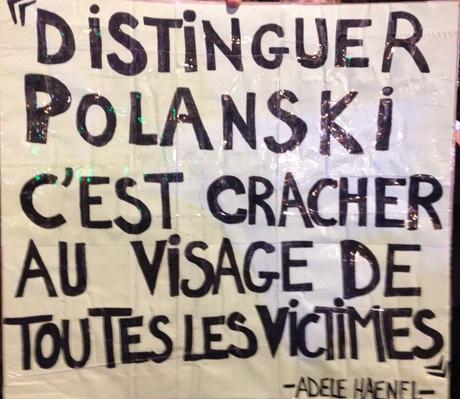 "DiSTiNGUER
POLANSKi
C'EST CRACHER
AU ViSAGE DE
TOUTES LES VICTiMES"
-ADELE HAENEL-